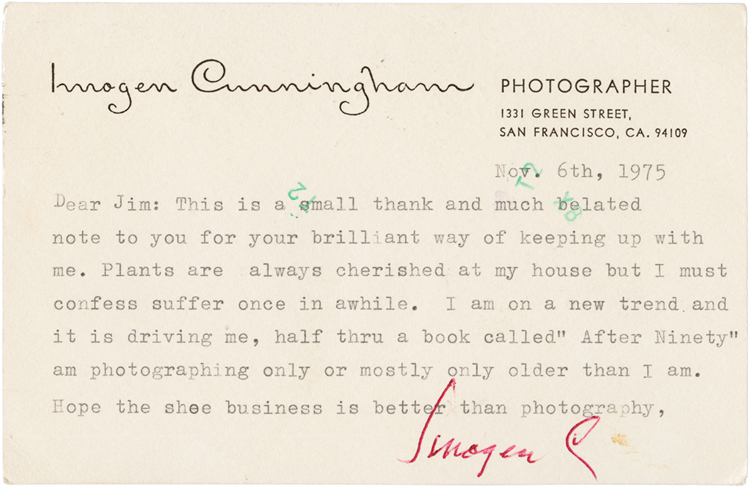 Imogen Cunningham PHOTOGRAPHER
1331 GREEN STREET,
SAN FRANCISCO, CA. 94109
Nov. 6th, 1975
Dear Jim: This is a small thank and much belated
note to you for your brilliant way of keeping up with
me. Plants are always cherished at my house but I must
confess suffer once in awhile. I am on a new trend and
it is driving me, half thru a book called" After Ninety"
am photographing only or mostly only older than I am.
Hope the shee business is better than photography,
Imogen C